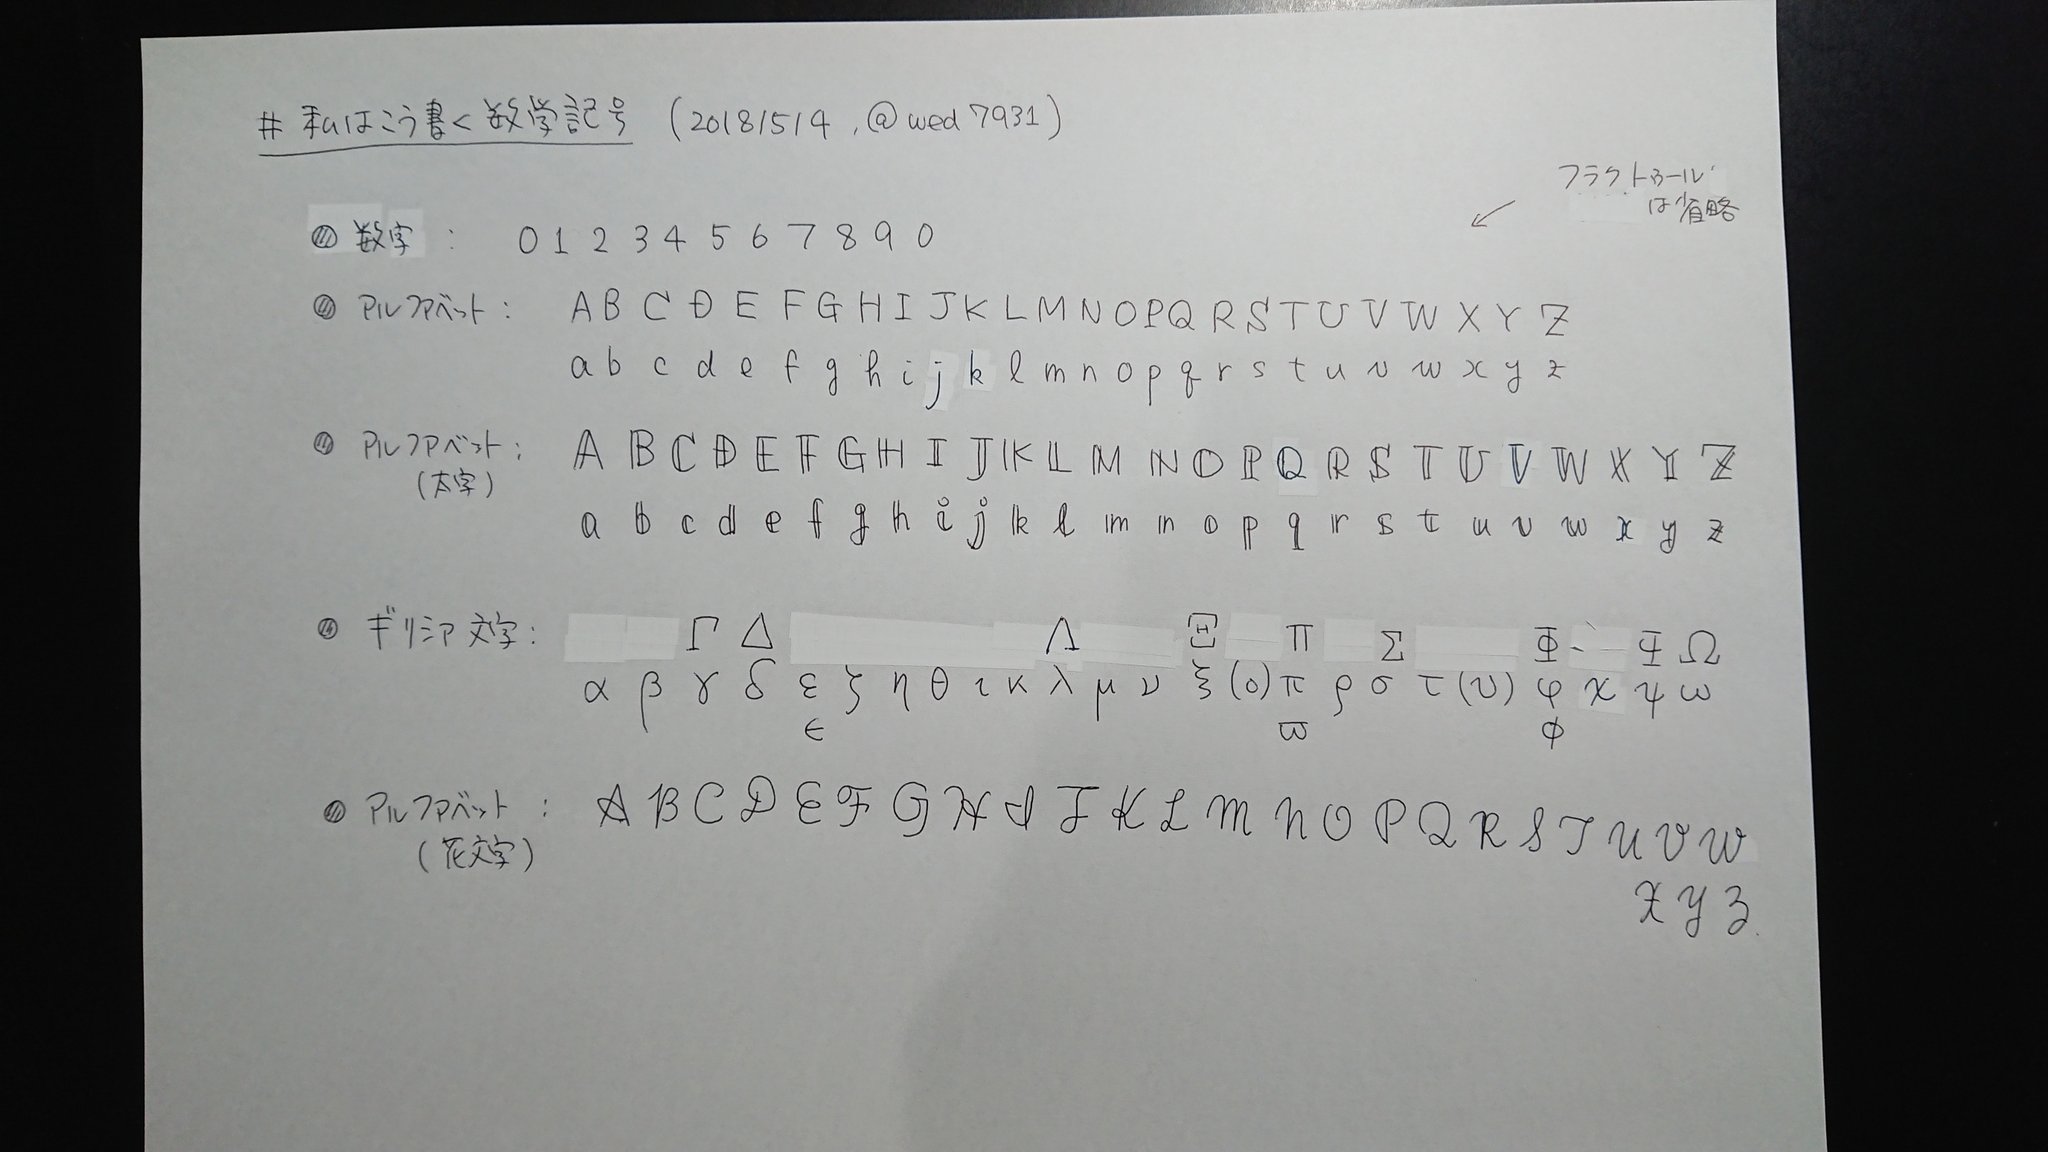 #私はこう書く数学記号 (2018/5/4, @wed7931)
フラクトゥール
は省略
数字 : 0 1 2 3 4 5 6 7 8 9 0
アルファベット : A B C D E F G H I J K L M N O P Q R S T U V W X Y Z
a b c d e f g h i j k l m n o p q r s t u v w x y z
アルファベット : A B C D E F G H I J K L M N O P Q R S T U V W X Y Z
(太字)
a b c d e f g h i j k l m n o p q r s t u v w x y z
ギリシア文字 : Γ Δ Λ Ξ Π Σ Φ Ψ Ω
α β γ δ ε ζ η θ ι κ λ μ ν ξ (ο) π ρ σ τ (υ) φ χ ψ ω
ϵ ϖ ϕ
アルファベット : A B C D E F G H I J K L M N O P Q R S T U V W
(花文字)
X Y Z